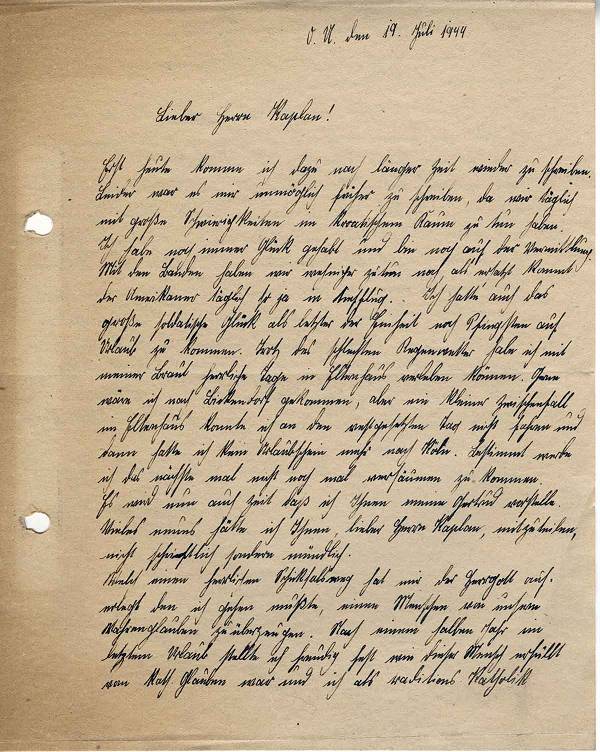 O. U. den 19. Juli 1944
Lieber Herrn Kaplan!
Erst heute komme ich dazu nach länger Zeit wieder zu schreiben.
Leider war es mir unmöglich früher zu schreiben, da wir täglich
mit große Schwierigkeiten im kroatischem Raum zu tun haben.
Ich habe noch immer Glück gehabt und bin noch auf der Vermittlung.
Mit den Banden haben wir weniger zutun noch als ersatz kommt
der Amerikaner täglich in
große soldatische Glück als letzter der Einheit noch Pfingsten auf
Urlaub zu kommen. Trotz des schlechten Regenwetter habe ich mit
meiner Braut herrliche Tage in Elternhaus verleben können. Gerne
wäre ich nach Birkendorf gekommen, aber ein kleiner zwischenfall
im Elternhaus konnte ich an den vestgesetzten Tag nicht fahren und
dann hatte ich kein Urlaubschein mehr nach Köln. Bestimmt werde
ich das nächste mal nicht noch mal versäumen zu kommen.
Es wird nun auch Zeit daß ich Ihnen meine Gertrud vorstelle.
Vieles neues hätte ich Ihnen, lieber Herrn Kaplan, mitzuteilen,
nicht schriftlich sondern mündlich.
Welch einen herrlichen Schicksalsweg hat mir der Herrgott auf-
erlegt den ich gehen mußte, einen Menschen von unseren
Wahrenglauben zu überzeugen. Nach einem halben Jahr im
letztem Urlaub stellte ich freudig fest wie dieser Mensch erfüllt
vom Kath. Glauben war und ich als raditions Katholik